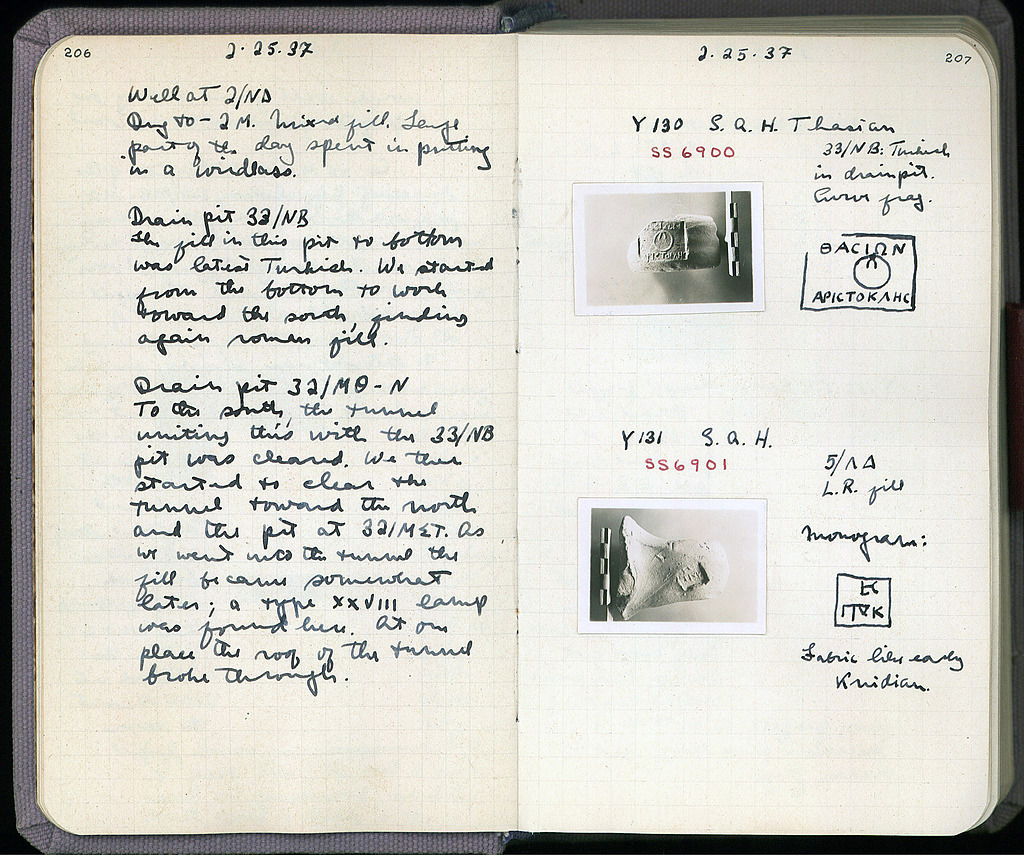 206
2·25·37
Well at 2/ND
Dug to -2M. Mixed fill. Large
part of the day spent in putting
in a windlass.
Drain pit 33/NB
The fill in this pit to bottom
was latest Turkish. We started
from the bottom to work
toward the south, finding
again roman fill.
Drain pit 32/MΘ-N
To the south, the tunnel
uniting this with the 33/NB
pit was cleared. We then
started to clear the
tunnel toward the north
and the pit at 32/MΣT. As
we went into the tunnel the
fill became somewhat
later; a type XXVIII lamp
was found here. At one
place the roof of the tunnel
broke through.
2·25·37
207
Y 130 S. A. H. Thasian
SS 6900
33/NB: Turkish
in drain pit.
Curve frag.
ΘΑΣΙΩΝ
ΑΡΙΣΤΟΚΛΗΣ
Y 131 S. A. H.
SS 6901
5/ΛΔ
L.R. fill
Monogram:
Fabric like early
Knidian.